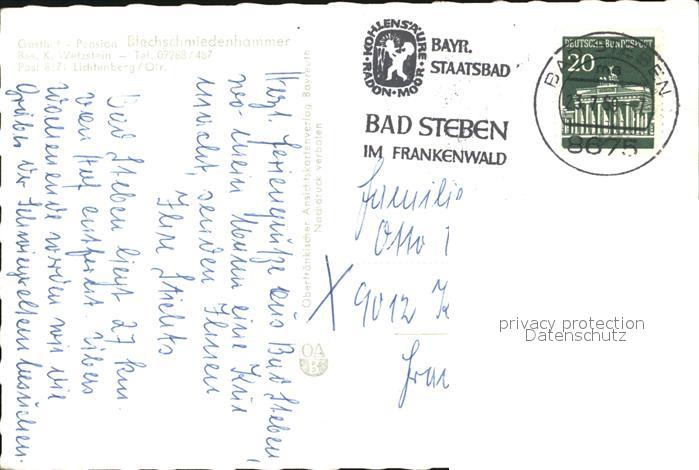 Gasthof - Pension Blechschmiedenhammer
Bes. K. Wetzstein - Tel. 09288/467
Post 8671 Lichtenberg/Ofr.
Herzl. Feriengrüße aus Bad Steben,
wo mein Mann eine Kur
macht, senden Ihnen
Ihre
Bad Steben liegt 27 km
von Hof entfernt. Übers
Wochenende werden wir die
Gräber der Schwiegereltern besuchen.
Oberfränkischer Ansichtskartenverlag Bayreuth
Nachdruck verboten
OA
B
KOHLENSÄURE
RADON · MOOR
BAYR.
STAATSBAD
BAD STEBEN
IM FRANKENWALD
DEUTSCHE BUNDESPOST
20
BAD STEBEN
8675
Familie
Otto
9012 K
privacy protection
Datenschutz